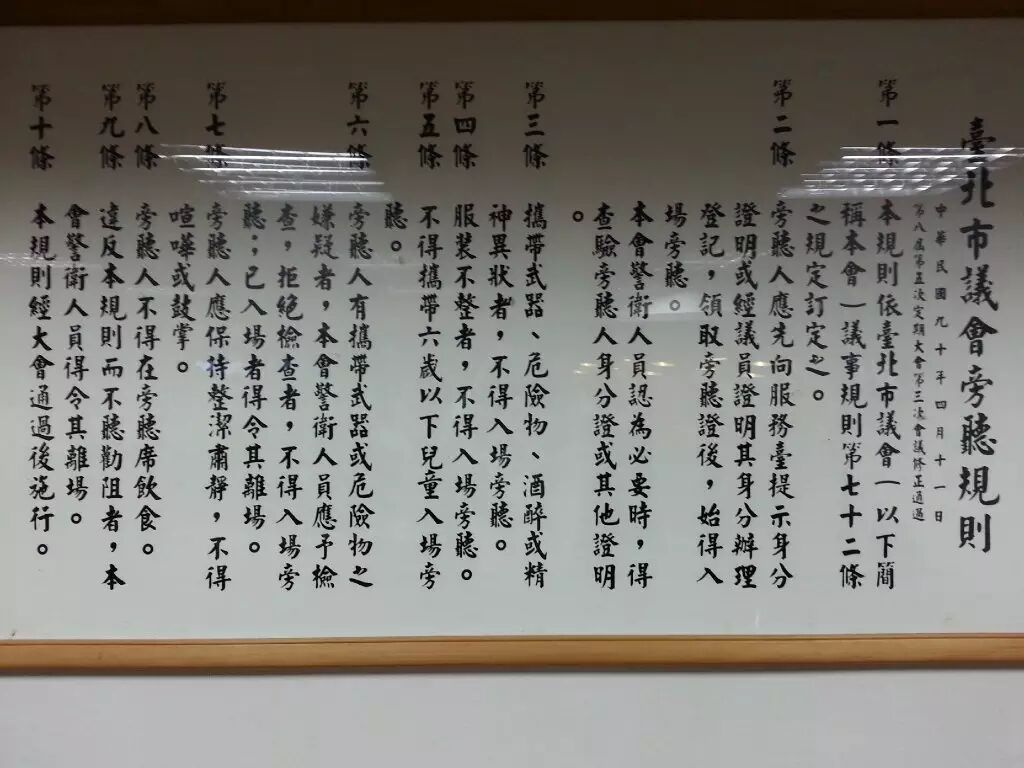 臺北市議會旁聽規則
中華民國九十年四月十一日
第八屆第五次定期大會第三次會議修正通過
第一條 本規則依臺北市議會︵以下簡
稱本會︶議事規則第七十二條
之規定訂定之。
第二條 旁聽人應先向服務臺提示身分
證明或經議員證明其身分辦理
登記，領取旁聽證後，始得入
場旁聽。
本會警衛人員認為必要時，得
查驗旁聽人身分證或其他證明
。
第三條 攜帶武器、危險物、酒醉或精
神異狀者，不得入場旁聽。
第四條 服裝不整者，不得入場旁聽。
第五條 不得攜帶六歲以下兒童入場旁
聽。
第六條 旁聽人有攜帶武器或危險物之
嫌疑者，本會警衛人員應予檢
查，拒絕檢查者，不得入場旁
聽；已入場者得令其離場。
第七條 旁聽人應保持整潔肅靜，不得
喧嘩或鼓掌。
第八條 旁聽人不得在旁聽席飲食。
第九條 違反本規則而不聽勸阻者，本
會警衛人員得令其離場。
第十條 本規則經大會通過後施行。